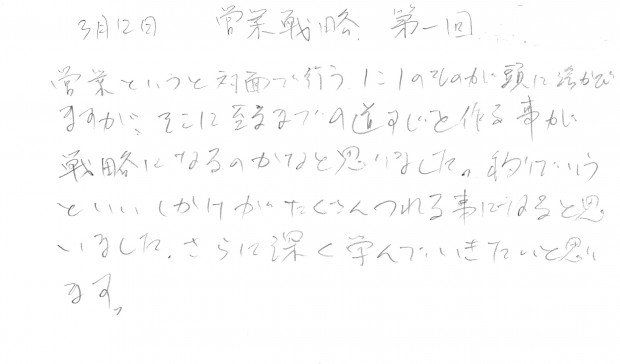 3月12日 営業戦略 第一回
営業というと対面で行う1:1のものが頭に浮かび
ますが、そこに至るまでの道すじを作る事が
戦略になるのかなと思いました。釣りでいう
といいしかけがたくさんつれる事になると思
いました。さらに深く学んでいきたいと思い
ます。